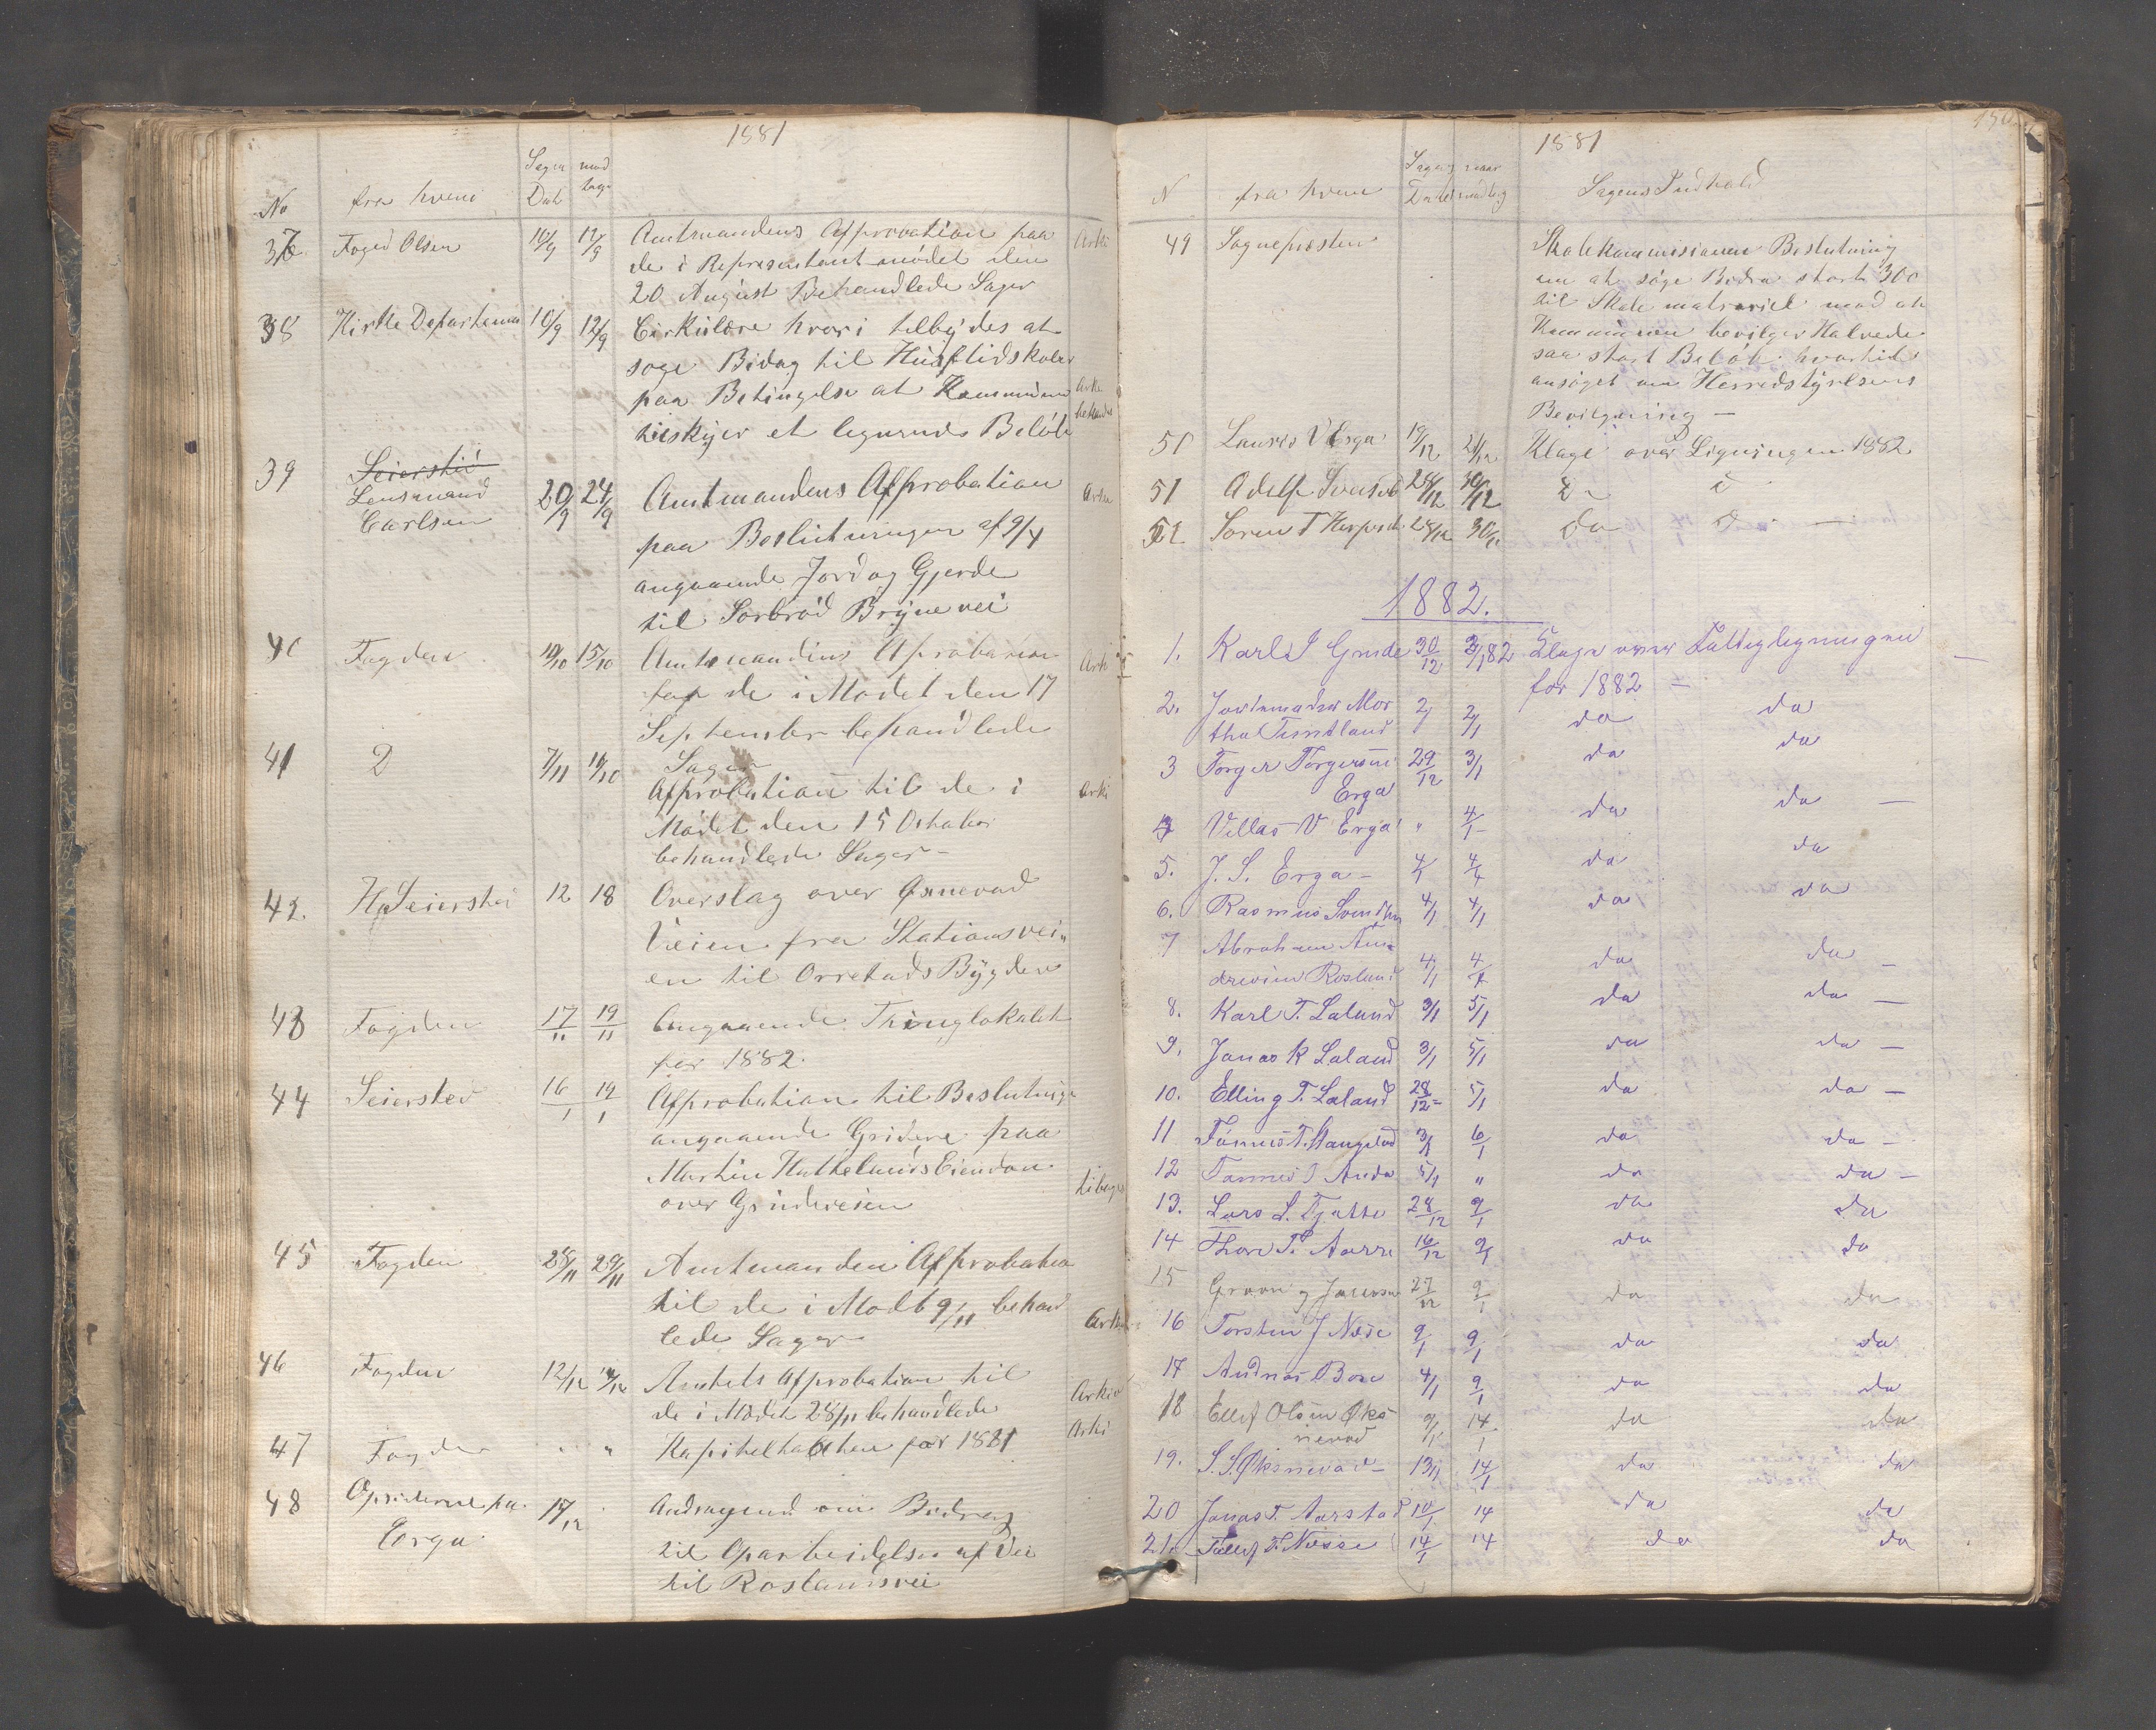 1881
No fra hvem Sagens Dat mod tage
37 Foged Olsen 10/9 12/9 Amtmandens Approbation paa Arki
de i Representantmödet den
20 August Behandlede Sager
38 Kirke Departemen 10/9 12/9 Cirkulære hvori tilbydes at
söge Bidrag til Husflidskoler
paa Betingelse at Kommunen Arki
tilskyer et lignende Belöb behandles
39 Seiersted
Lensmand 20/9 24/9 Amtmandens Approbation
Carlsen
paa Beslutningen af 9/4
angaaende Jord og Gjerde
til Sorbröd Bryne vei
40 Fogden 10/10 15/10 Amtmandens Aprobation Arki
for de i Mödet den 17
September behandlede
Sager
41 D 7/11 10/10 Approbation til de i Arki
Mödet den 15 Oktober
behandlede Sager
42. H Seiersted 12 18 Overslag over Øxnevad
Veien fra Stationsvei
en til Orrestads Bygden
43 Fogden 17/11 19/11 Angaaende Thinglokalet
for 1882.
44 Seiersted 16/1 19/1 Approbation til Beslutninge
angaaende Gridene paa
Martin Huthelunds Eiendon
over Grindeveien tilbage
45 Fogden 28/11 29/11 Amtmanden Approbation
til de i Mödt 9/11 behand
lede Sager Arki
46 Fogden 12/12 14/12 Amtets Approbation til
de i Mödet 28/11 behandlede Arkiv
47 Fogden " Kapiteltakten for 1881 Arki
48 Opsiderne paa 17/12 Andragende om Bidrag
Erga
til Oparbeidelse af Vei
til Roslandsvei
150
1881
N fra hvem Sagens Dato naar modtag Sagens Indhold
49 Sognepresten Skolekommisionens Beslutning
um at söge Bidra stort 300
til Skole matrariel mod at
Kommunen bevilger Halvede
saa stort Belöb. hvortil
ansöget om Herredstyrelsens
Bevilgning —
50 Laurits V Erga 19/12 21/12 Klage over Ligningen 1882
51 Adolf Svensen 28/12 30/12 D
52 Soren T Herpest 28/12 30/12 do d
1882.
1. Karl J Grude 30/12 3/1 82 Klage over Fattigligningen
for 1882 —
2. Jordemoder Mar 2/ 2/1 do do
tha Timtland
3 Torger Torgersen 29/12 3/1 do do
Erga
4 Villas V Erga " 4/1 do do —
5. J. S. Erga - 4/1 4/1 do do
6. Rasmus Svendsen 4/1 4/1 do do
7 Abraham An
dreisen Rosland 4/1 4/1 do do —
8. Karl T. Laland 3/1 5/1 do do —
9. Jonas K Laland 3/1 5/1 do do —
10. Elling T. Laland 28/12 5/1 do do —
11 Tönnes T. Haugstad 3/1 6/1 do do -
12 Tönnes T Anda 5/1 " do do -
13. Lars L. Tjötta 28/12 9/1 do do
14 Thore T. Aarre 16/12 9/1 do do
15 27/12 9/1 do do
16 Torsten J Næse 9/1 9/1 do do
17 Andreas Bore 4/1 9/1 do do
18 Ellef Olsen Øks 9/1 14/1 do do
nevad
19. S. S. Øksnevad 13/1 14/1 do do
20 Jonas T. Aarstad 10/1 14 do do
21. Tollef T. Næsse 14/1 14 do do